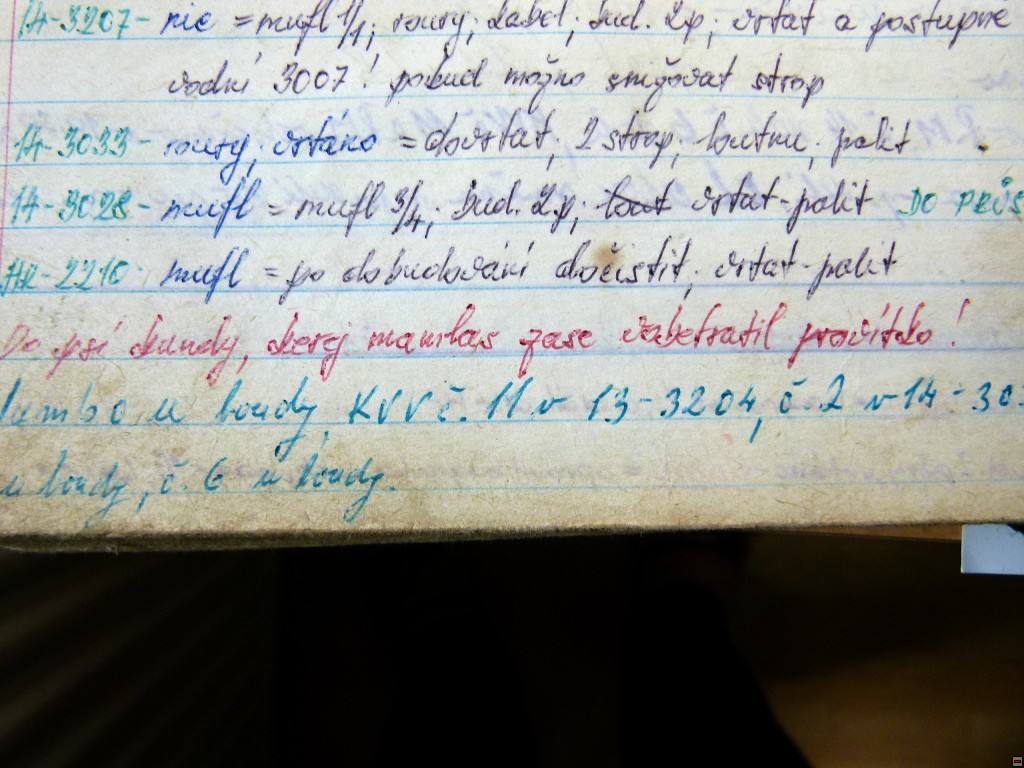 14-3207- nic = mufl 1/1; roury; kabel; bud. 2p; vrtat a postupně
vodní 3007! pokud možno snižovat strop
14-3033- roury; vrtáno = dovrtat; 2 strop; loutnu; palit
14-3028- mufl = mufl 3/4; bud. 2p; lout vrtat-palit DO PRŮS
-2210- mufl = po dobudování dočistit; vrtat-palit
Do psí kundy, kerej mamlas zase vobetratil pravítko!
u boudy, KVV č. 11 v 13-3204, č. 2 v 14-30
u boudy, č. 6 u boudy.